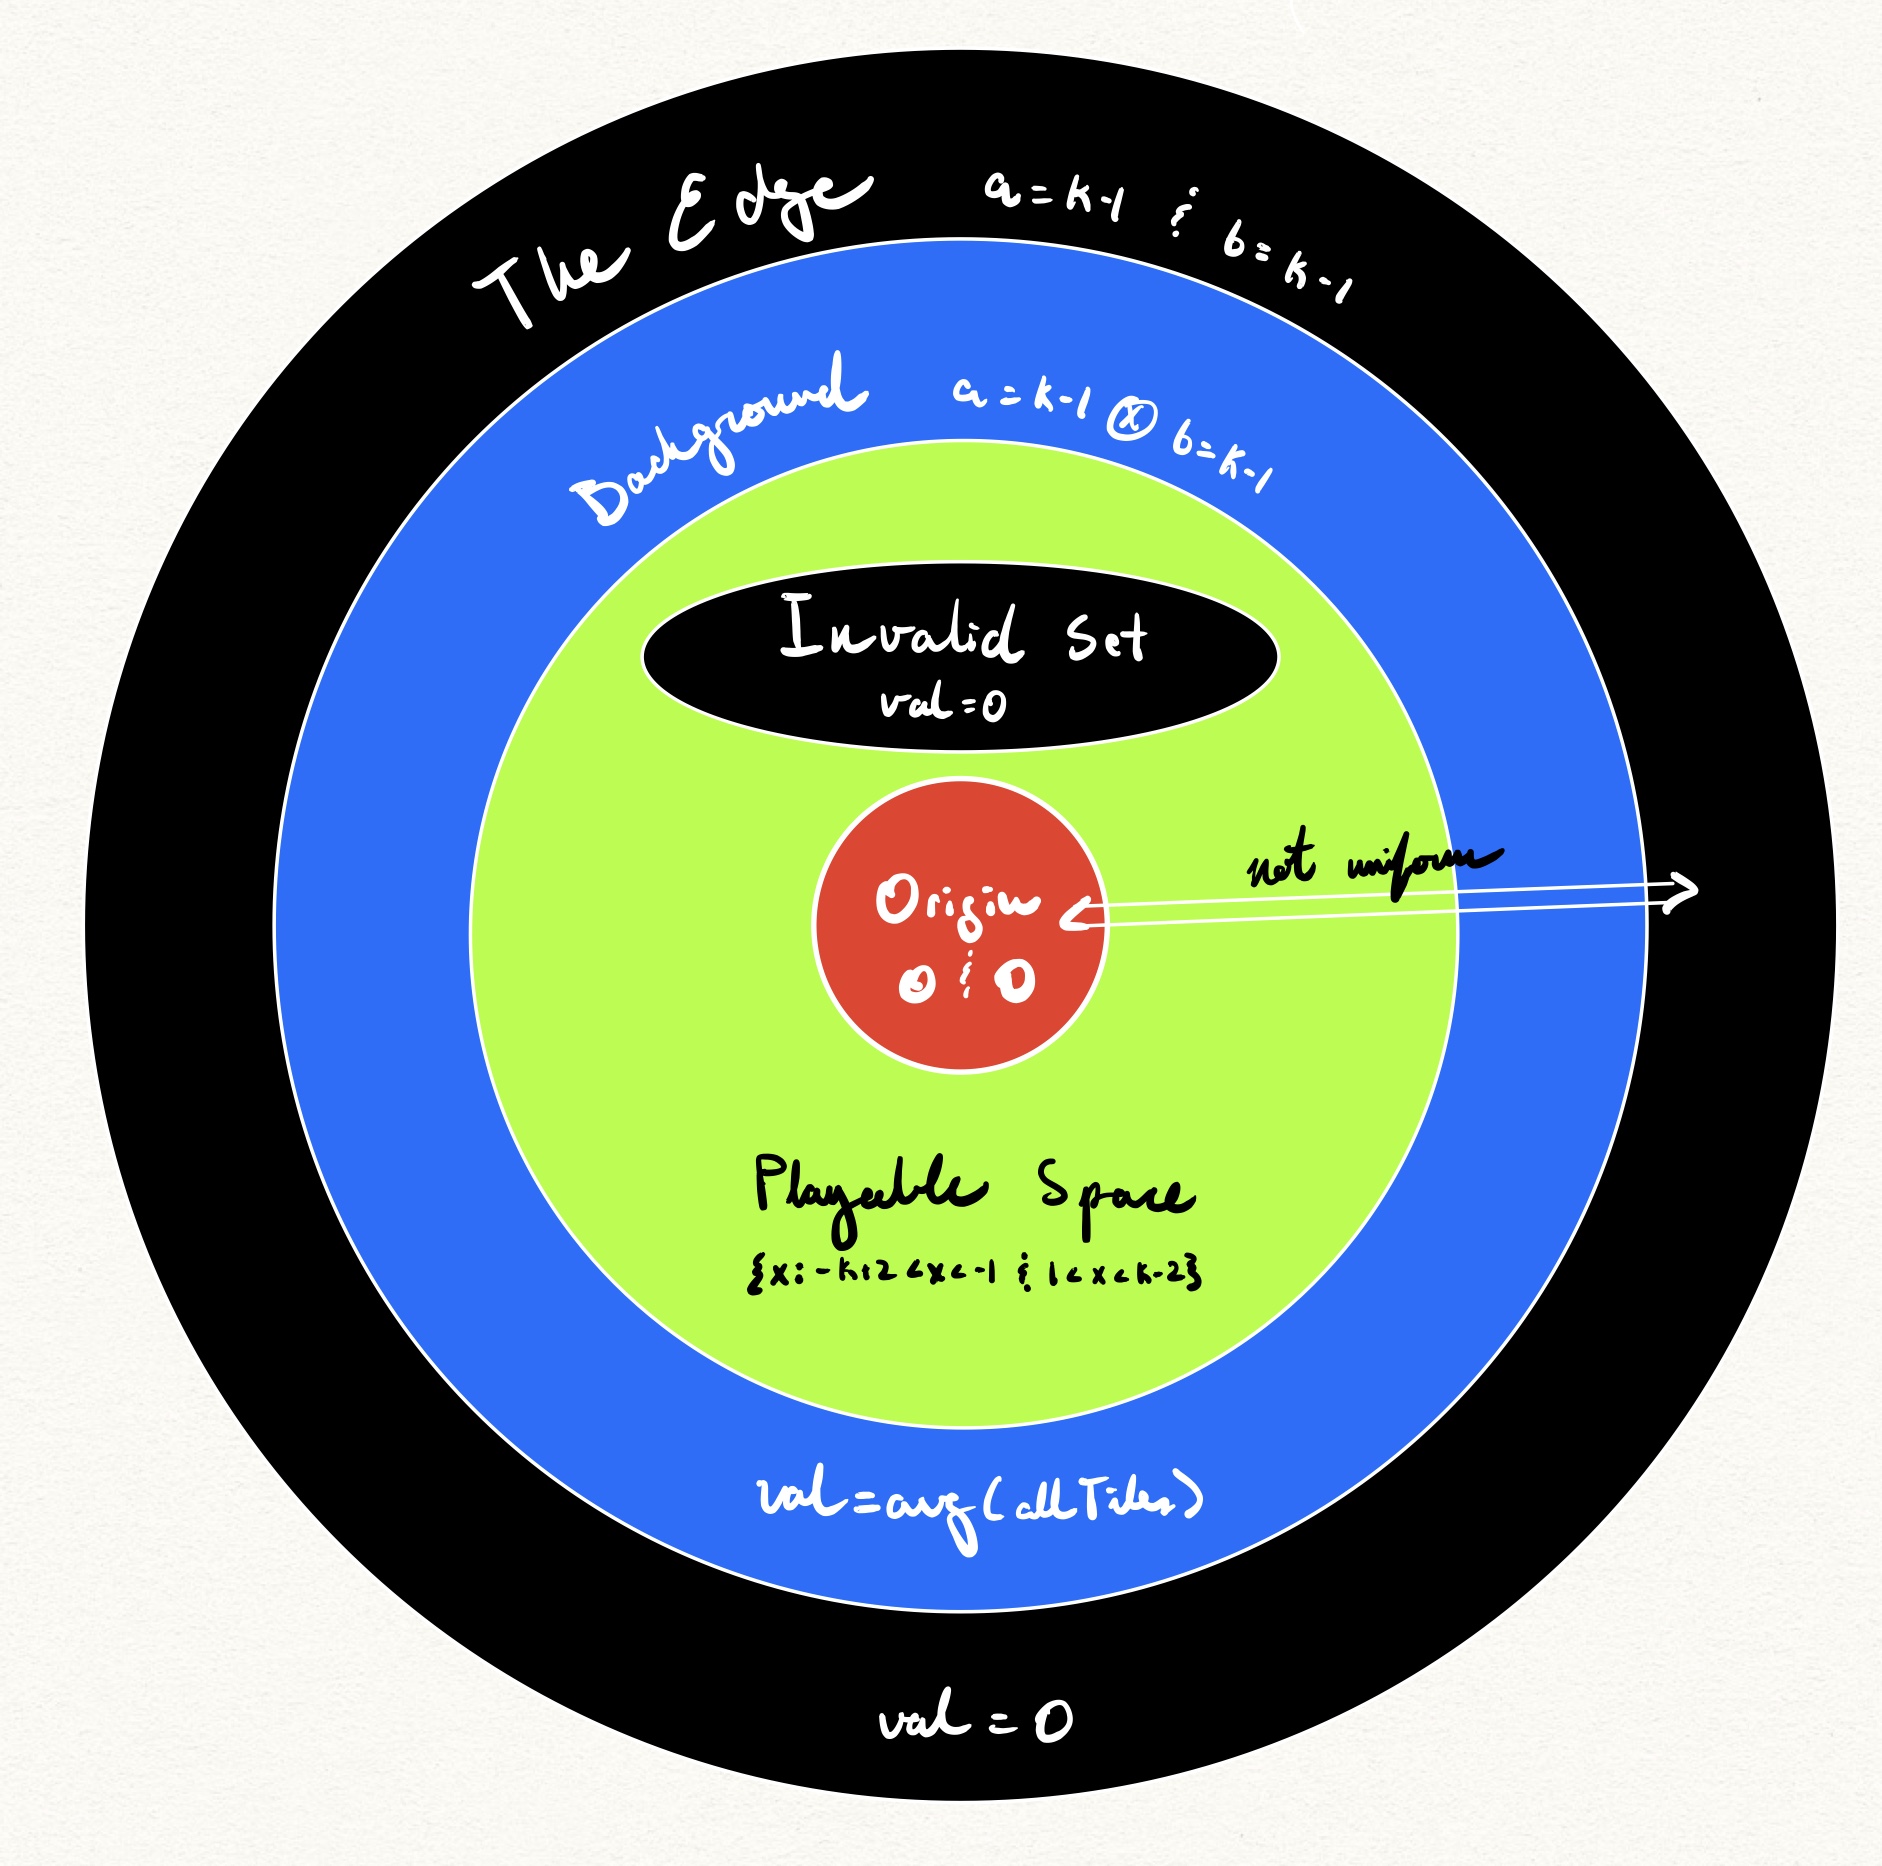 The Edge a=k-1 & b=k-1
Background a=k-1 ⊗ b=k-1
Invalid Set
val=0
not uniform
Origin
0 & 0
Playeable Space
{x: -k+2<x<-1 & 1<x<k-2}
val=avg(allTiles)
val=0